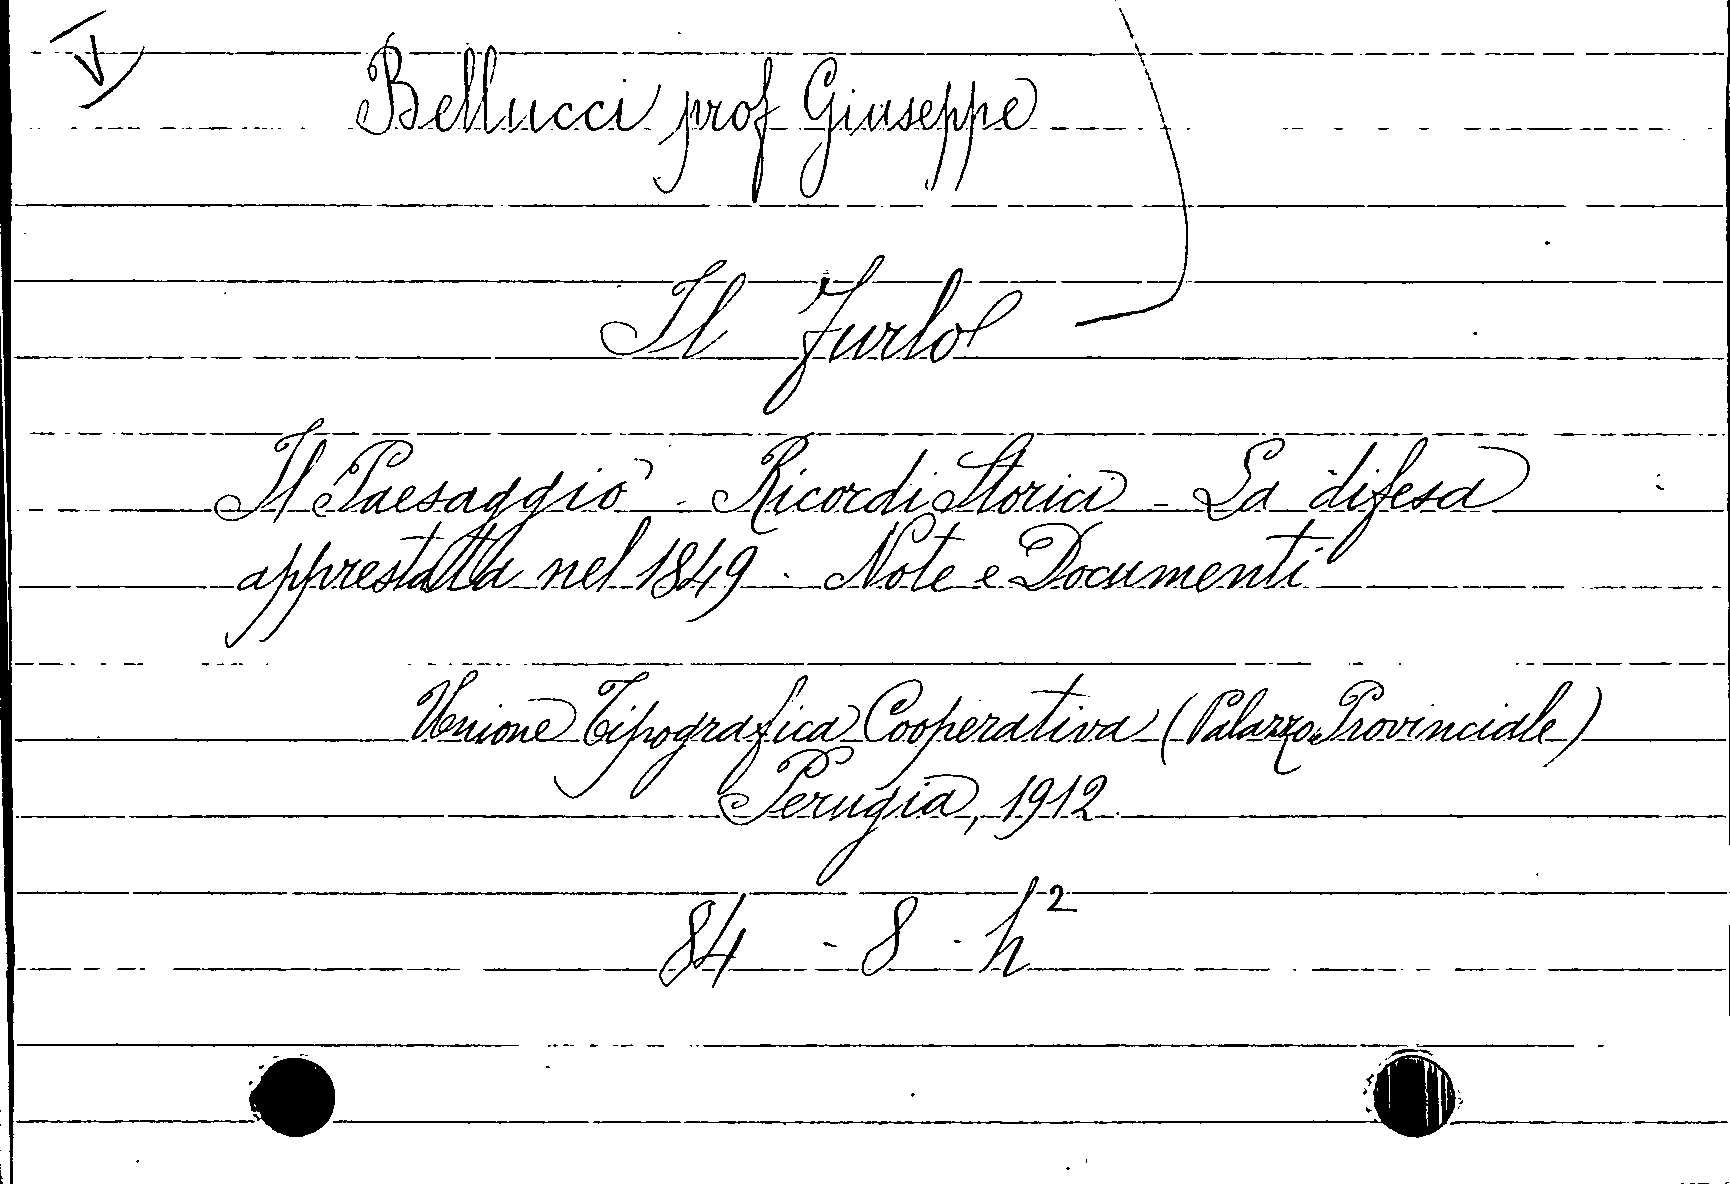 V
Bellucci prof Giuseppe
Il Furlo
Il Paesaggio - Ricordi Storici - La difesa
apprestata nel 1849 - Note e Documenti
Unione Tipografica Cooperativa (Palazzo Provinciale)
Perugia, 1912.
84 - 8 - h²